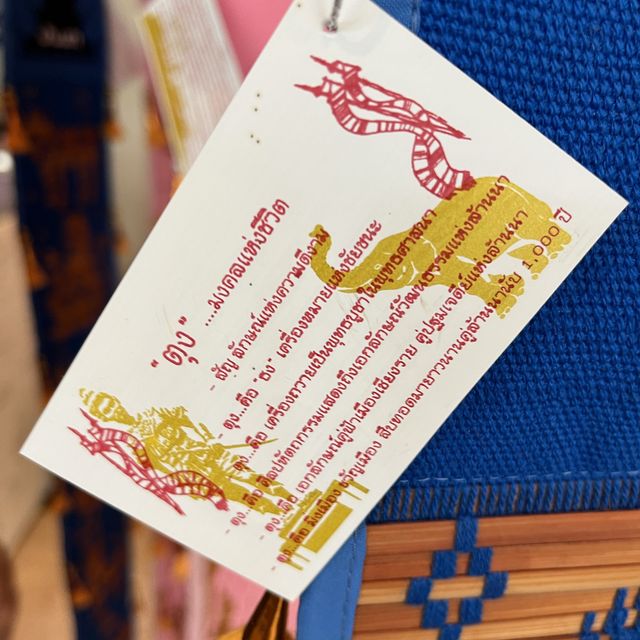 "ตุง" ....มงคลแห่งชีวิต
- สัญลักษณ์แห่งความดีงาม
- ตุง...คือ "ธง" เครื่องหมายแห่งชัยชนะ
- ตุง...คือ เครื่องถวายเป็นพุทธบูชาในพุทธศาสนา
- ตุง...คือ ศิลปหัตถกรรมแสดงถึงเอกลักษณ์วัฒนธรรมแห่งล้านนา
- ตุง...คือ เอกลักษณ์คู่ฟ้าเมืองเชียงราย คู่ปฐมเจดีย์แห่งล้านนา
- ตุง...คือ มิ่งเมือง ขวัญเมือง สืบทอดมายาวนานคู่ล้านนานับ 1,000 ปี